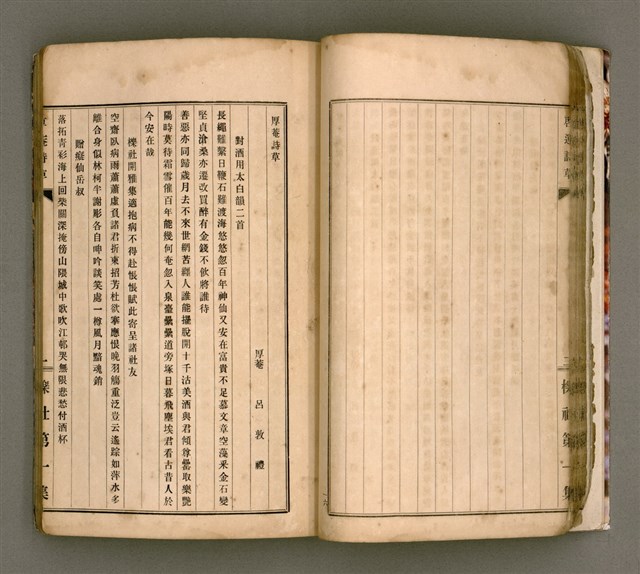 厚菴詩草
厚菴 呂敦禮
對酒用太白韻二首
長繩難繫日鞭石難渡海悠悠忽百年神仙又安在富貴不足慕文章空藻釆金石變
堅貞滄桑亦遷改買醉有金錢不飲將誰待
善惡亦同歸歲月去不來世網苦經人誰能擺脫開十千沽美酒與君傾尊罍當取樂艷
陽時莫待霜雪催百年能幾何奄忽入泉臺纍纍道旁塚日暮飛塵埃君看古昔人於
今安在哉
櫟社開雅集適抱病不得赴悵悵賦此寄呈諸社友
空齋臥病雨蕭蕭虛負諸君折柬招芳杜欲搴應恨晚羽觴重泛豈云遙踪如萍水多
離合身似林柯半謝彫各自呻吟談笑處一樽風月黯魂銷
贈癡仙岳叔
落拓青衫海上回柴關深掩傍山隈城中歌吹江邨哭無限悲愁付酒杯
詩草
一 櫟社第一集
詩草
二 櫟社第一集